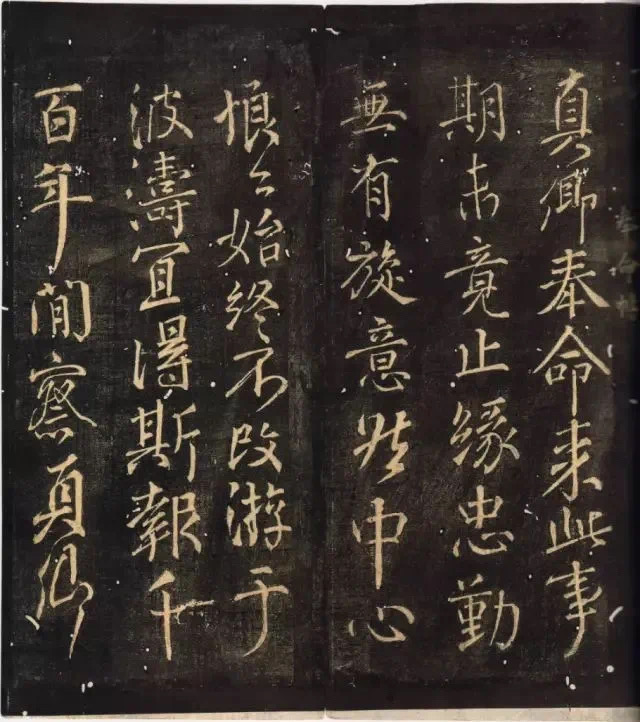 真卿奉命来此事
期未竟止緣忠勤
無有旋意然中心
悢々始終不改游于
波濤宜得斯報千
百年間察真卿